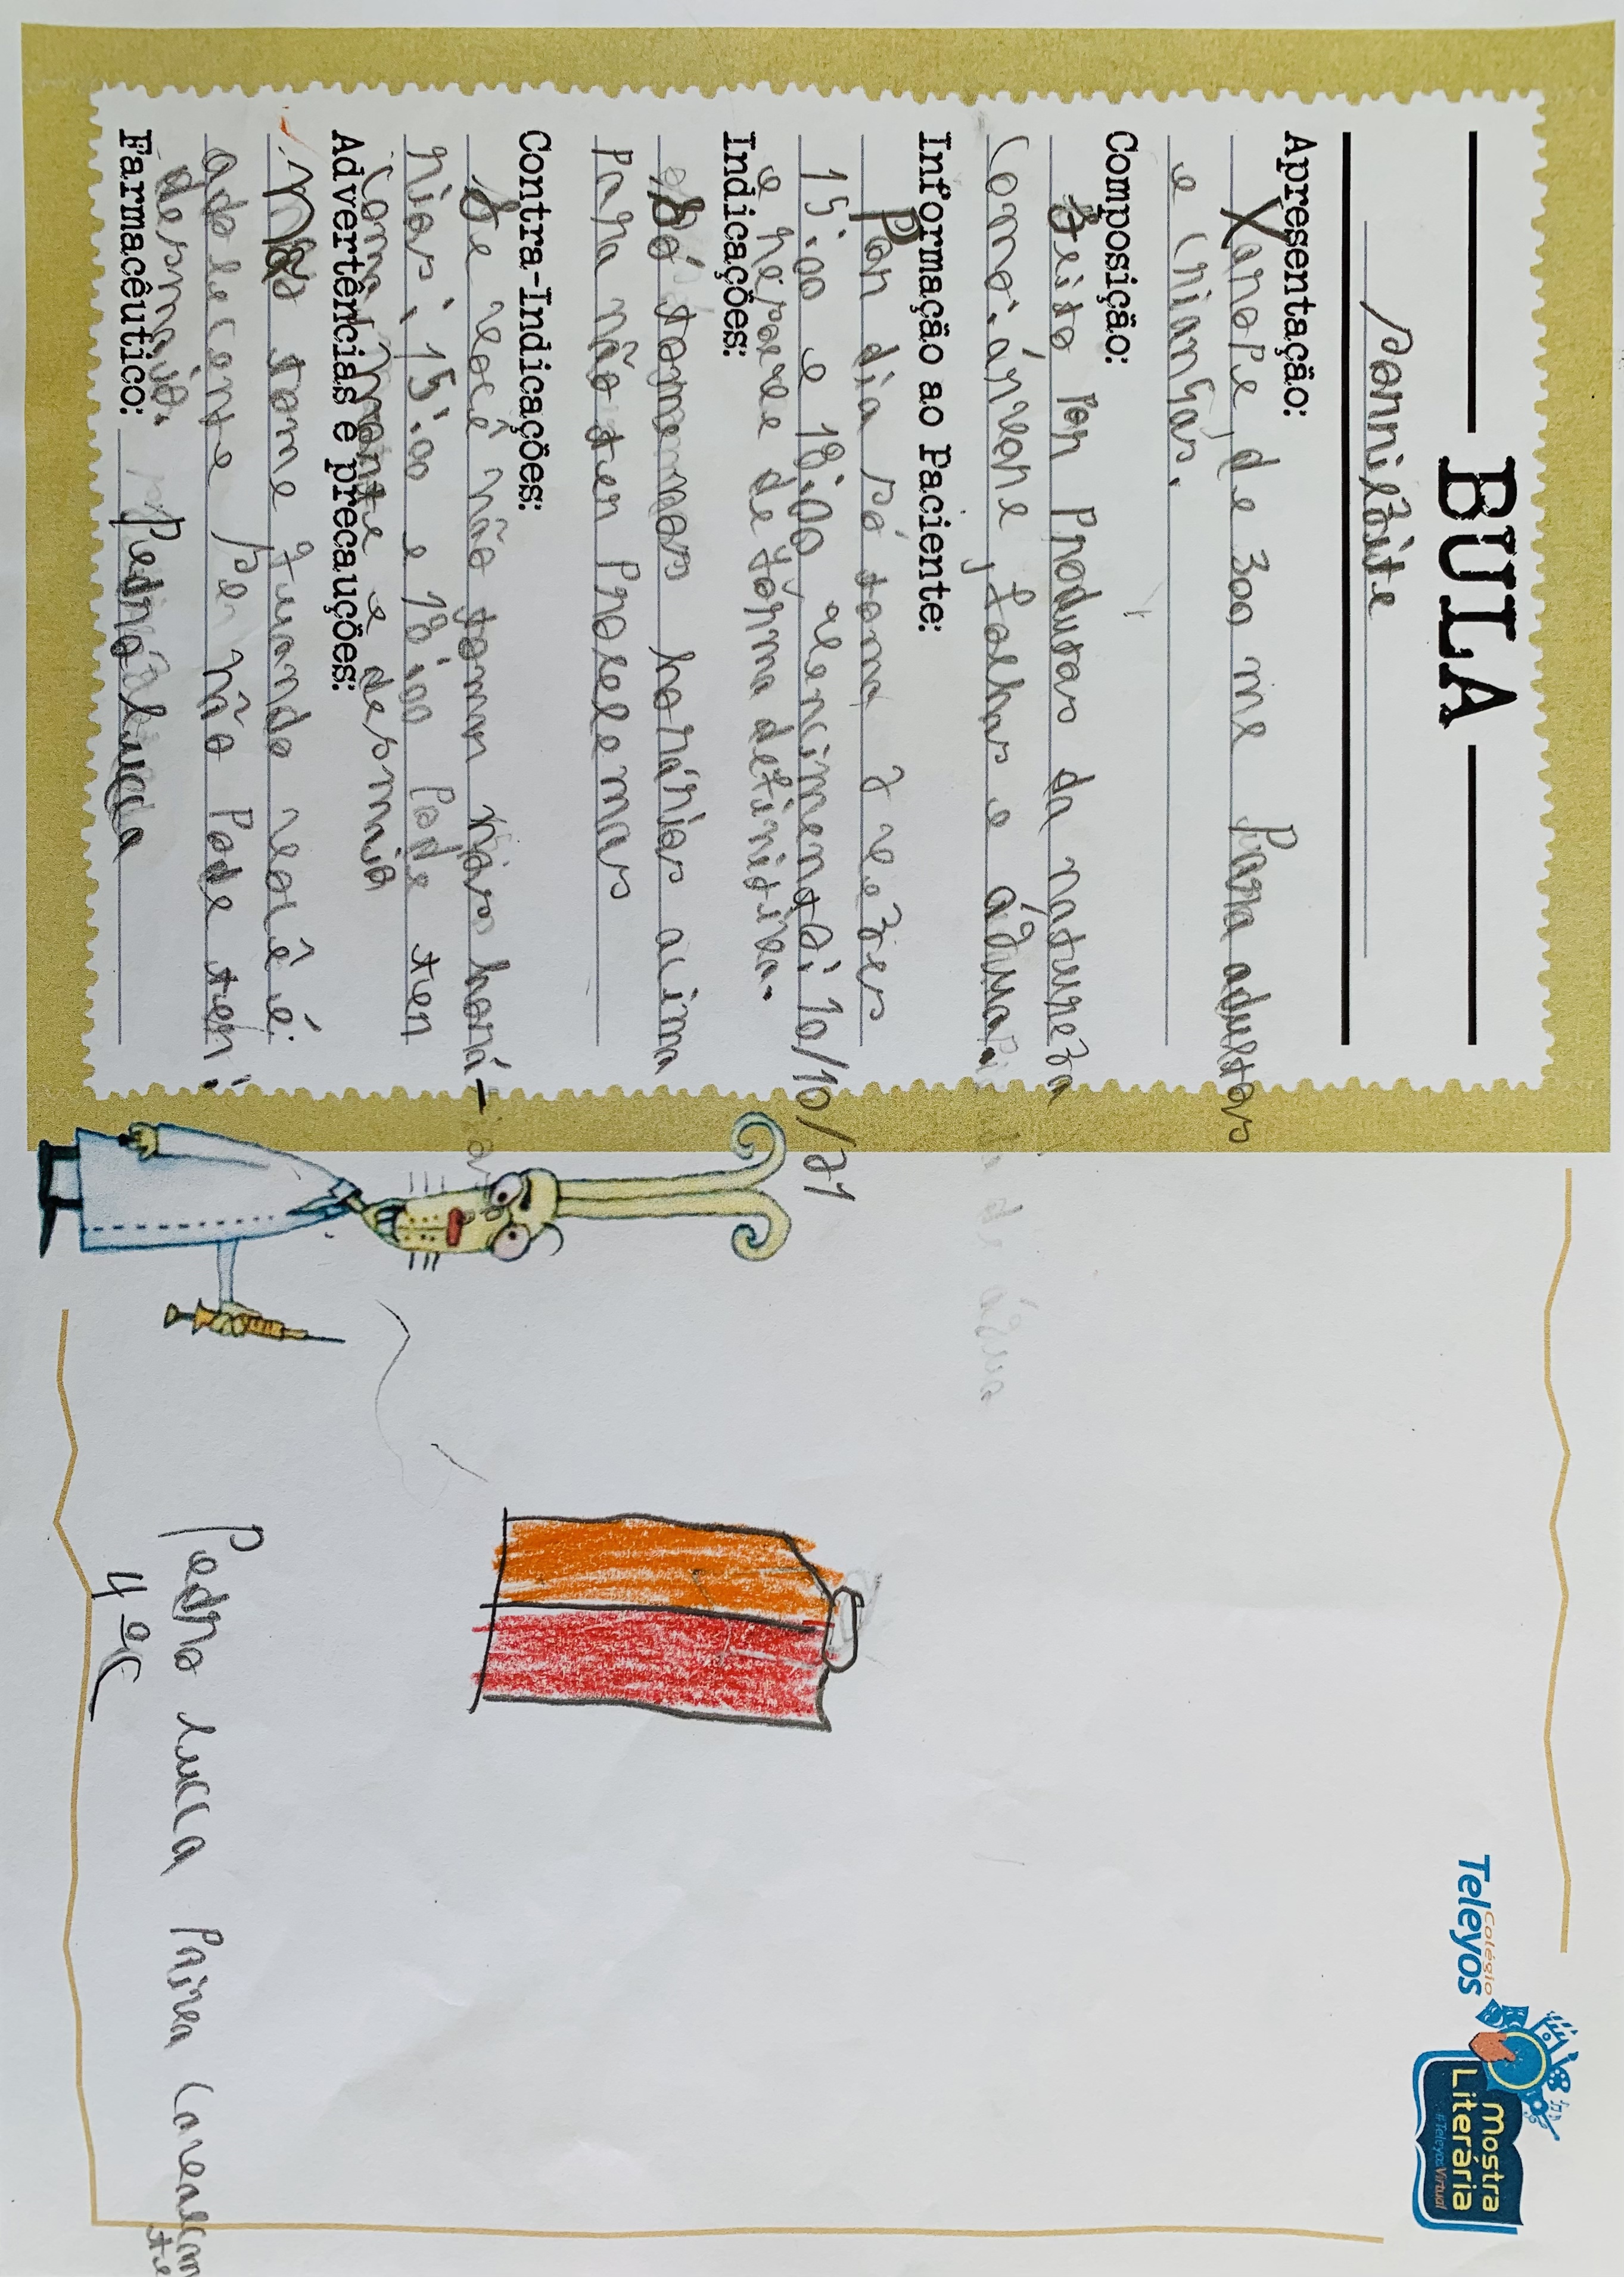 BULA
Apresentação:
Xarope, de 300 ml Para adultos
e crianças.
Composição:
Feito Por Produtos da natureza
Como: árvore, folhas e água.
Informação ao Paciente:
Por dia só toma 2 vezes
15:00 e 18:00 vencimento: 10/10/21
e herpere de forma definitiva.
Indicações:
Só tome nos horários acima
Para não ter Problemas
Contra-Indicações:
Se você não tomar nos horá-
rios: 15:00 e 18:00 Pode ter
Coma, morte e desmaio
Advertências e precauções:
Não tome quando você é
adolecente se não Pode ter:
desmaio.
Farmacêutico: Pedro Lucca
Pedro Lucca Paiva Cavalcan
te
4ºC
Colégio
Teleyos
Mostra
Literária
#TeleyosVirtual